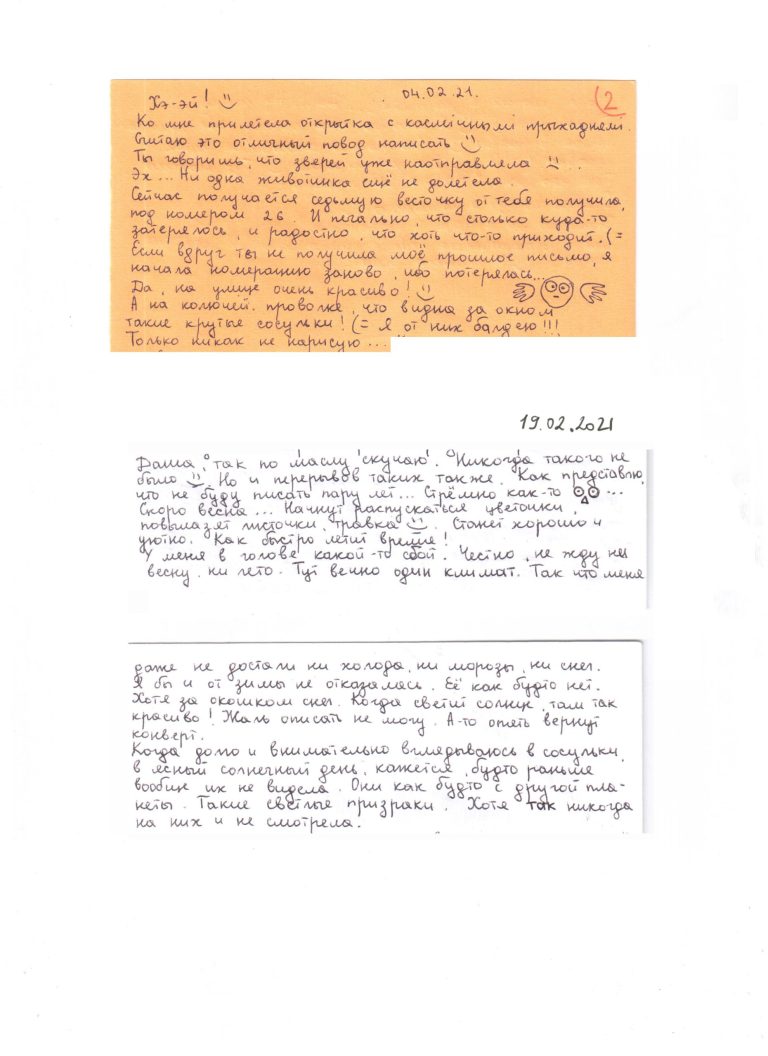 Хэ-эй!
04.02.21.
2
Ко мне прилетела открытка с касмічнымі прыхаднямі.
Считаю это отличный повод написать
Ты говоришь, что зверей уже наотправляла ...
Эх... Ни одна животинка ещё не долетела.
Сейчас получается седьмую весточку от тебя получила,
под номером 26. И печально, что столько куда-то
затерялось, и радостно, что хоть что-то приходит. (=
Если вдруг ты не получила моё прошлое письмо, я
начала нумерацию заново, ибо потерялась...
Да, на улице очень красиво!
А на колючей проволке, что видна за окном
такие крутые сосульки! (= Я от них балдею!!!
Только никак не нарисую...
19.02.2021
Даша, так по маслу скучаю. Никогда такого не
было Но и перерывов таких также. Как представлю,
что не буду писать пару лет... Стрёмно как-то ...
Скоро весна... Начнут распускаться цветочки,
повылазят листочки, травка . Станет хорошо и
уютно. Как быстро летит время!
У меня в голове какой-то сбой. Честно, не жду ни
весну, ни лето. Тут вечно один климат. Так что меня
даже не достали ни холода, ни морозы, ни снег.
Я бы и от зимы не отказалась. Её как будто нет.
Хотя за окошком снег. Когда светит солнце, там так
красиво! Жаль описать не могу. А-то опять вернут
конверт.
Когда долго и внимательно вглядываюсь в сосульки,
в ясный солнечный день, кажется, будто раньше
вообще их не видела. Они как будто с другой пла-
неты. Такие светлые призраки. Хотя так никогда
на них и не смотрела.